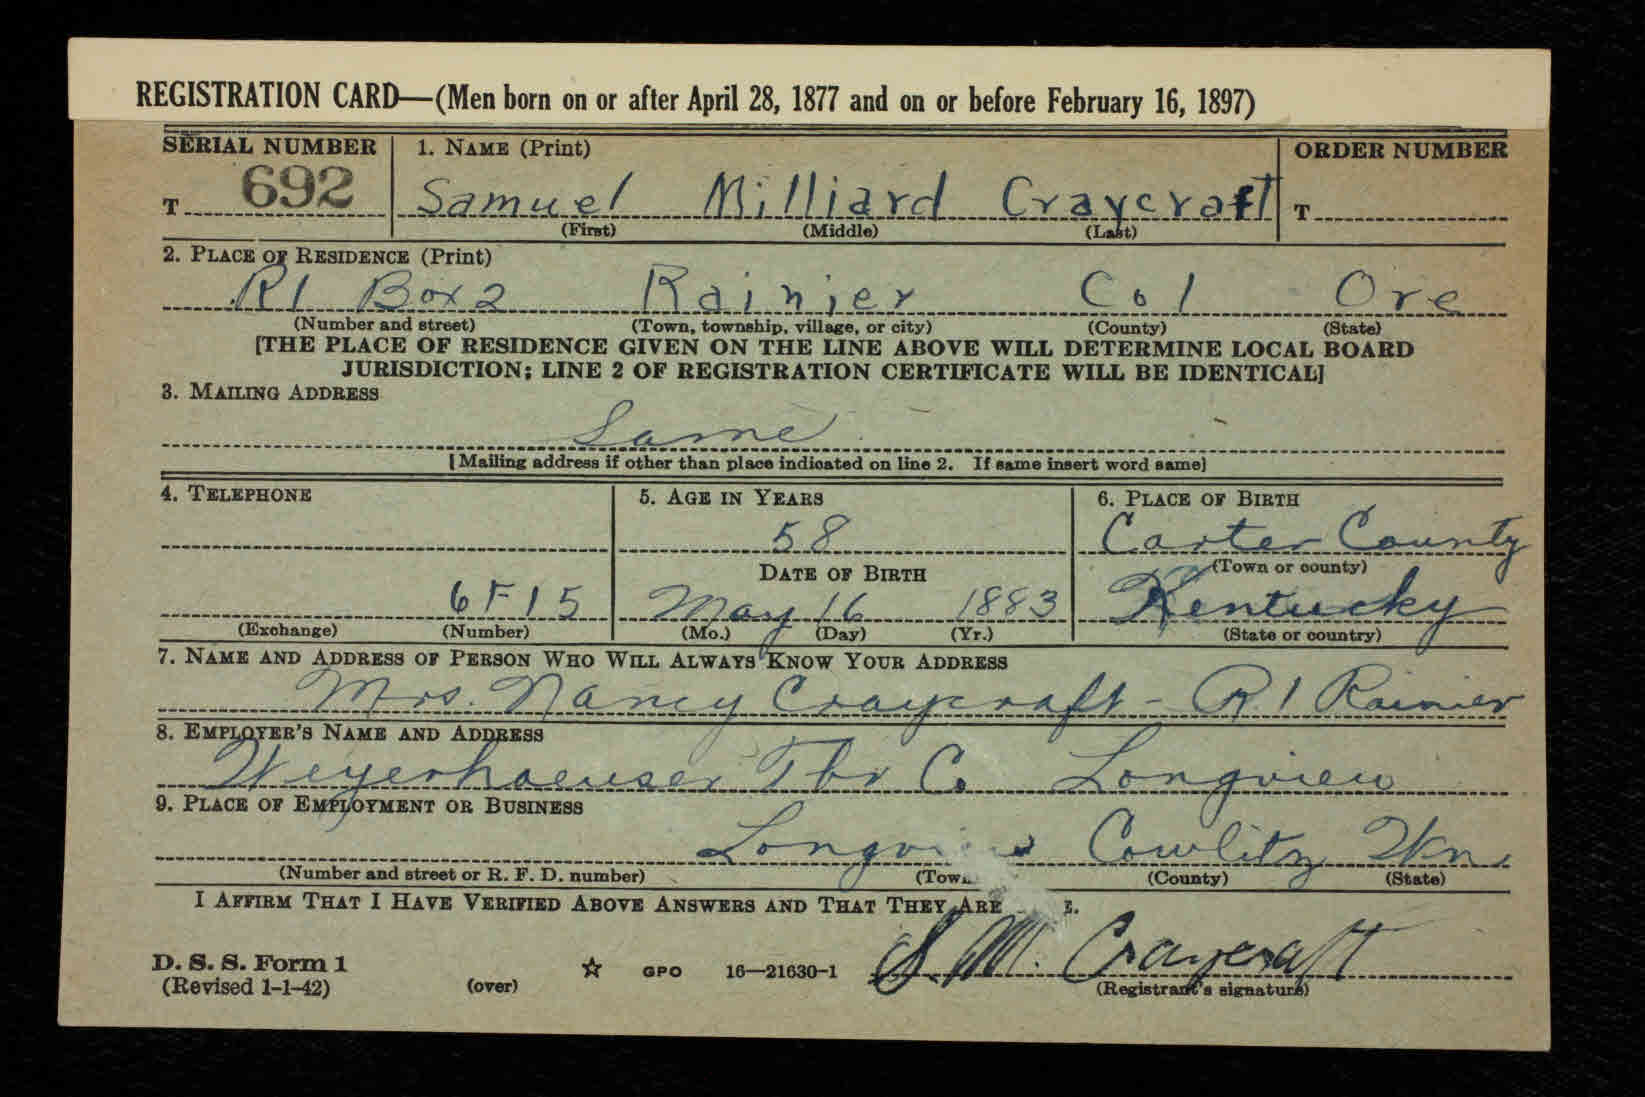 REGISTRATION CARD—(Men born on or after April 28, 1877 and on or before February 16, 1897)
SERIAL NUMBER 1. NAME (Print) ORDER NUMBER
T 692 Samuel Milliard Craycraft T
(First) (Middle) (Last)
2. PLACE OF RESIDENCE (Print)
R1 Box 2 Rainier Col Ore
(Number and street) (Town, township, village, or city) (County) (State)
[THE PLACE OF RESIDENCE GIVEN ON THE LINE ABOVE WILL DETERMINE LOCAL BOARD
JURISDICTION; LINE 2 OF REGISTRATION CERTIFICATE WILL BE IDENTICAL]
3. MAILING ADDRESS
Same
[Mailing address if other than place indicated on line 2. If same insert word same]
4. TELEPHONE 5. AGE IN YEARS 6. PLACE OF BIRTH
58 Carter County
DATE OF BIRTH (Town or county)
6F15 May 16 1883 Kentucky
(Exchange) (Number) (Mo.) (Day) (Yr.) (State or country)
7. NAME AND ADDRESS OF PERSON WHO WILL ALWAYS KNOW YOUR ADDRESS
Mrs. Nancy Craycraft - R.1 Rainier
8. EMPLOYER'S NAME AND ADDRESS
Weyerhaeuser Tbr Co Longview
9. PLACE OF EMPLOYMENT OR BUSINESS
Longview Cowlitz Wn.
(Number and street or R. F. D. number) (Town (County) (State)
I AFFIRM THAT I HAVE VERIFIED ABOVE ANSWERS AND THAT THEY ARE E.
S. M. Craycraft
D. S. S. Form 1
(Revised 1-1-42) (over) ☆ GPO 16—21630-1 (Registrant's signature)